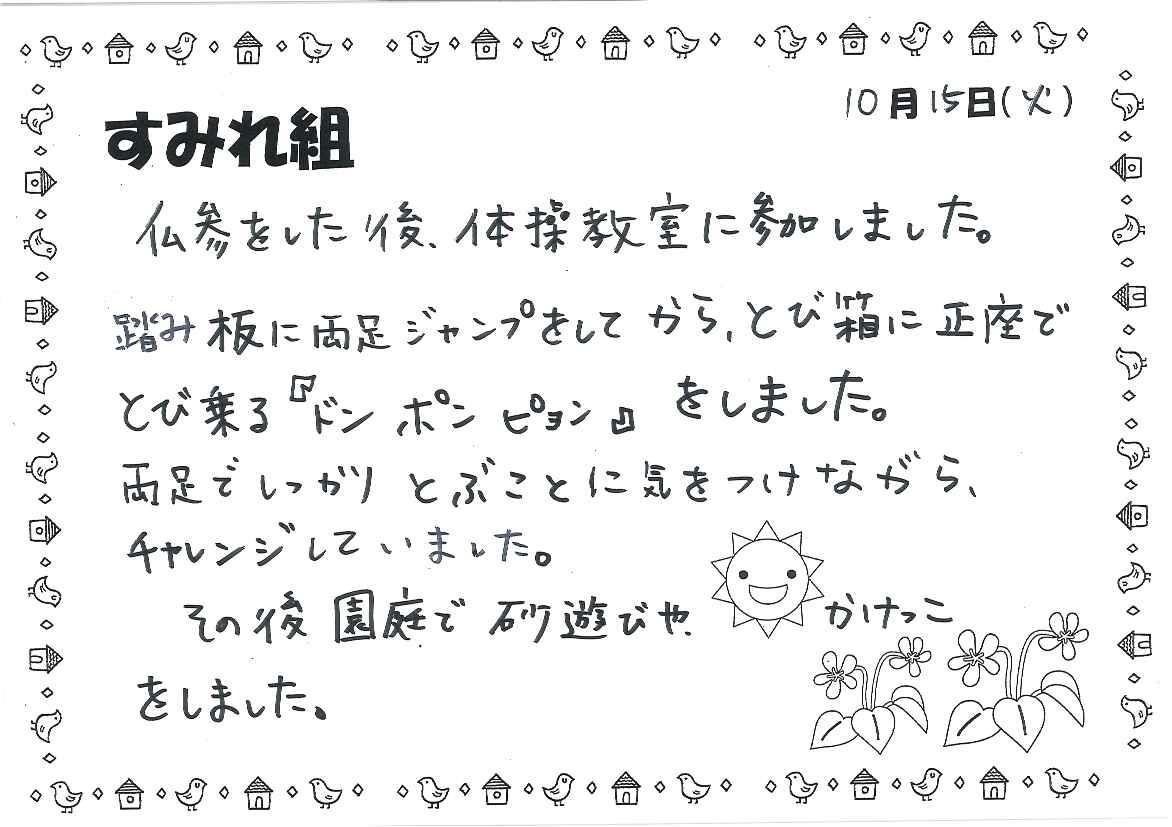 10月15日(火)
すみれ組
仏参をした後、体操教室に参加しました。
踏み板に両足ジャンプをしてから、とび箱に正座で
とび乗る『ドン ポン ピョン』をしました。
両足でしっかりとぶことに気をつけながら、
チャレンジしていました。
その後園庭で砂遊びや、かけっこ
をしました。